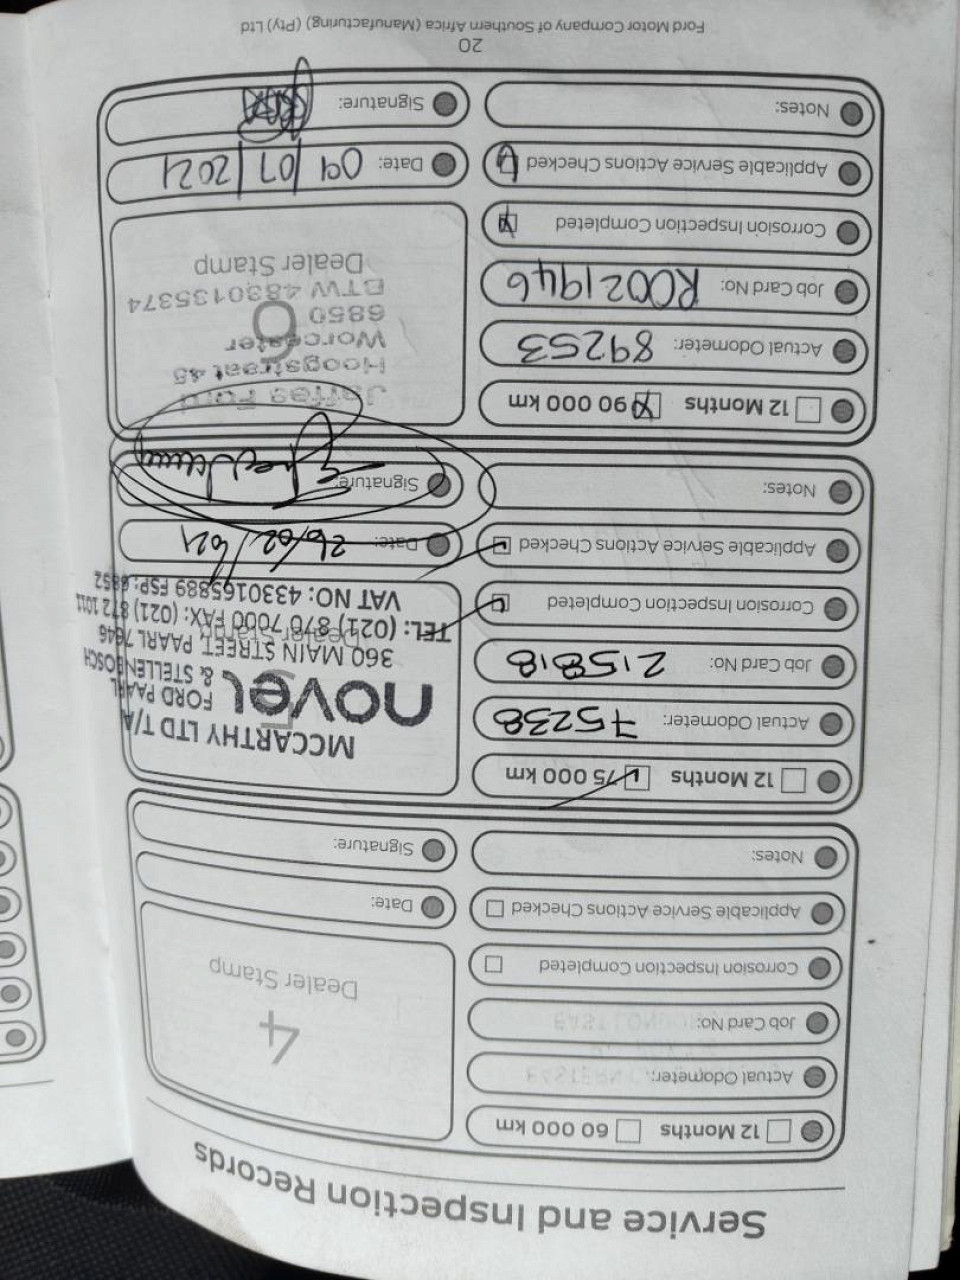 Service and Inspection Records
12 Months 60 000 km
Actual Odometer:
Job Card No:
Corrosion Inspection Completed
Applicable Service Actions Checked
Notes:
4
Dealer Stamp
Date:
Signature:
12 Months 75 000 km
Actual Odometer: 75238
Job Card No: 215818
Corrosion Inspection Completed
Applicable Service Actions Checked
Notes:
MCCARTHY LTD T/A
novel FORD PAARL
& STELLENBOSCH
360 MAIN STREET, PAARL 7646
TEL: (021) 870 7000 FAX: (021) 872 1011
VAT NO: 4330165889 FSP: 6852
Dealer Stamp
Date: 26/02/021
Signature:
12 Months 90 000 km
Actual Odometer: 89253
Job Card No: RO021946
Corrosion Inspection Completed
Applicable Service Actions Checked
Notes:
Jaffes Ford
Hoogstraat 45
Worcester
6850
BTW 4830135374
6
Dealer Stamp
Date: 09/07/2021
Signature:
20
Ford Motor Company of Southern Africa (Manufacturing) (Pty) Ltd